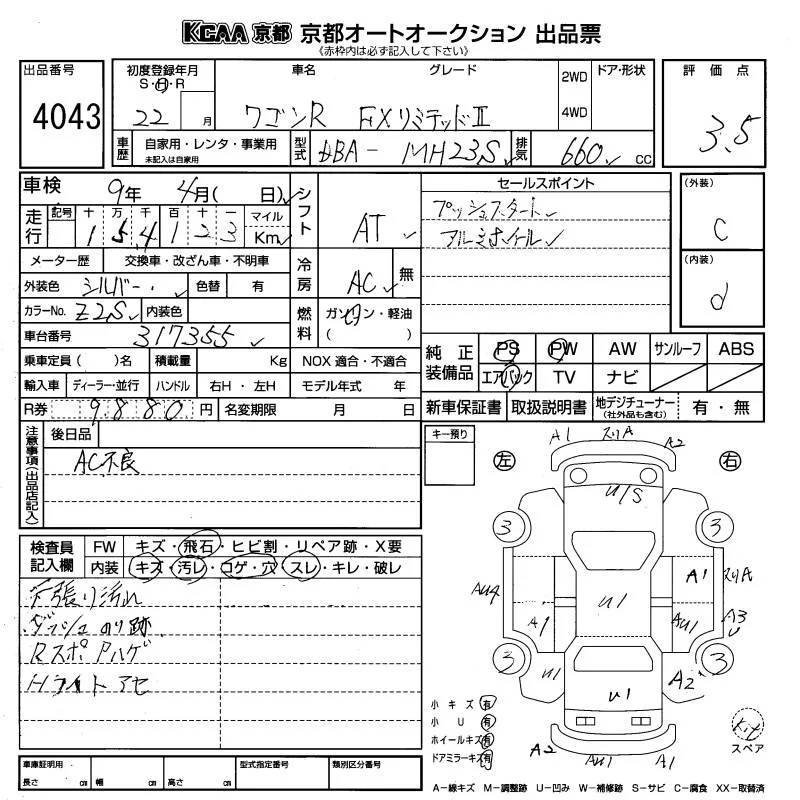 KCAA 京都 京都オートオークション 出品票
《赤枠内は必ず記入して下さい》
出品番号
4043
初度登録年月
S・H・R
22 月
車名
グレード
ワゴンR FXリミテッドⅡ
2WD
4WD
ドア・形状
評価点
3.5
車歴
自家用・レンタ・事業用
未記入は自家用
型式
DBA- MH23S
排気
660 CC
車検 9年 4月( 日)
走行
記号 十 万 千 百 十 一 マイル
1 5 4 1 2 3 Km
メーター歴 交換車・改ざん車・不明車
外装色 シルバー 色替 有
カラーNo. Z2S 内装色
車台番号 317355
乗車定員( )名 積載量 Kg NOX適合・不適合
輸入車 ディーラー・並行 ハンドル 右H・左H モデル年式 年
R券 9880 円 名変期限 月 日
シフト AT
冷房 AC 無
燃料 ガソリン・軽油
( )
セールスポイント
プッシュスタート
アルミホイール
(外装)
C
(内装)
d
純正装備品
PS PW AW サンルーフ ABS
エアバック TV ナビ
新車保証書 取扱説明書 地デジチューナー
(社外品も含む)
有・無
注意事項(出品店記入)
後日品
AC不良
キー預り
検査員記入欄
FW キズ・飛石・ヒビ割・リペア跡・X要
内装 キズ・汚レ・コゲ・穴・スレ・キレ・破レ
天張り汚れ
ダッシュのり跡
RスポPハゲ
Hライトアセ
左
右
A1 スリA A2
U/S
3 3
AU4 A1 U1 A1 スリA
AU1 A3
U
3 U1 U1 A2 3
A2 AU1 A1
小キズ 有
小U 有
ホイールキズ 有
ドアミラーキズ 有
スペア
A-線キズ M-調整跡 U-凹み W-補修跡 S-サビ C-腐食 XX-取替済
車庫証明用
長さ cm 幅 cm 高さ cm
型式指定番号
類別区分番号